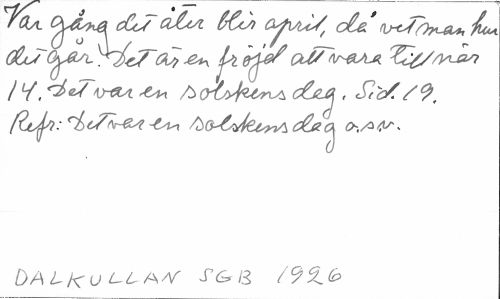 Var gång det åter blir april, då vet man hur
det går. Det är en fröjd att vara till når
14. Det var en solskens dag. Sid. 19.
Refr: Det var en solskens dag o.s.v.
DALKULLAN SGB 1926